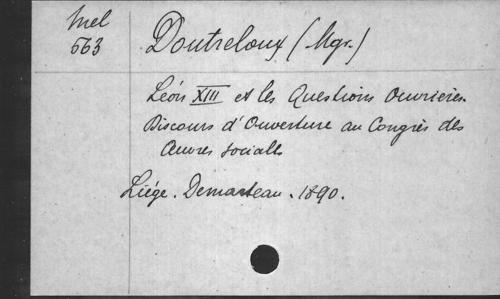 Mel
563
Doutreloux (Mgr.)
Léon XIII et les Questions Ouvrières.
Discours d'Ouverture au Congrès des
Œuvres sociales
Liége. Demarteau. 1890.